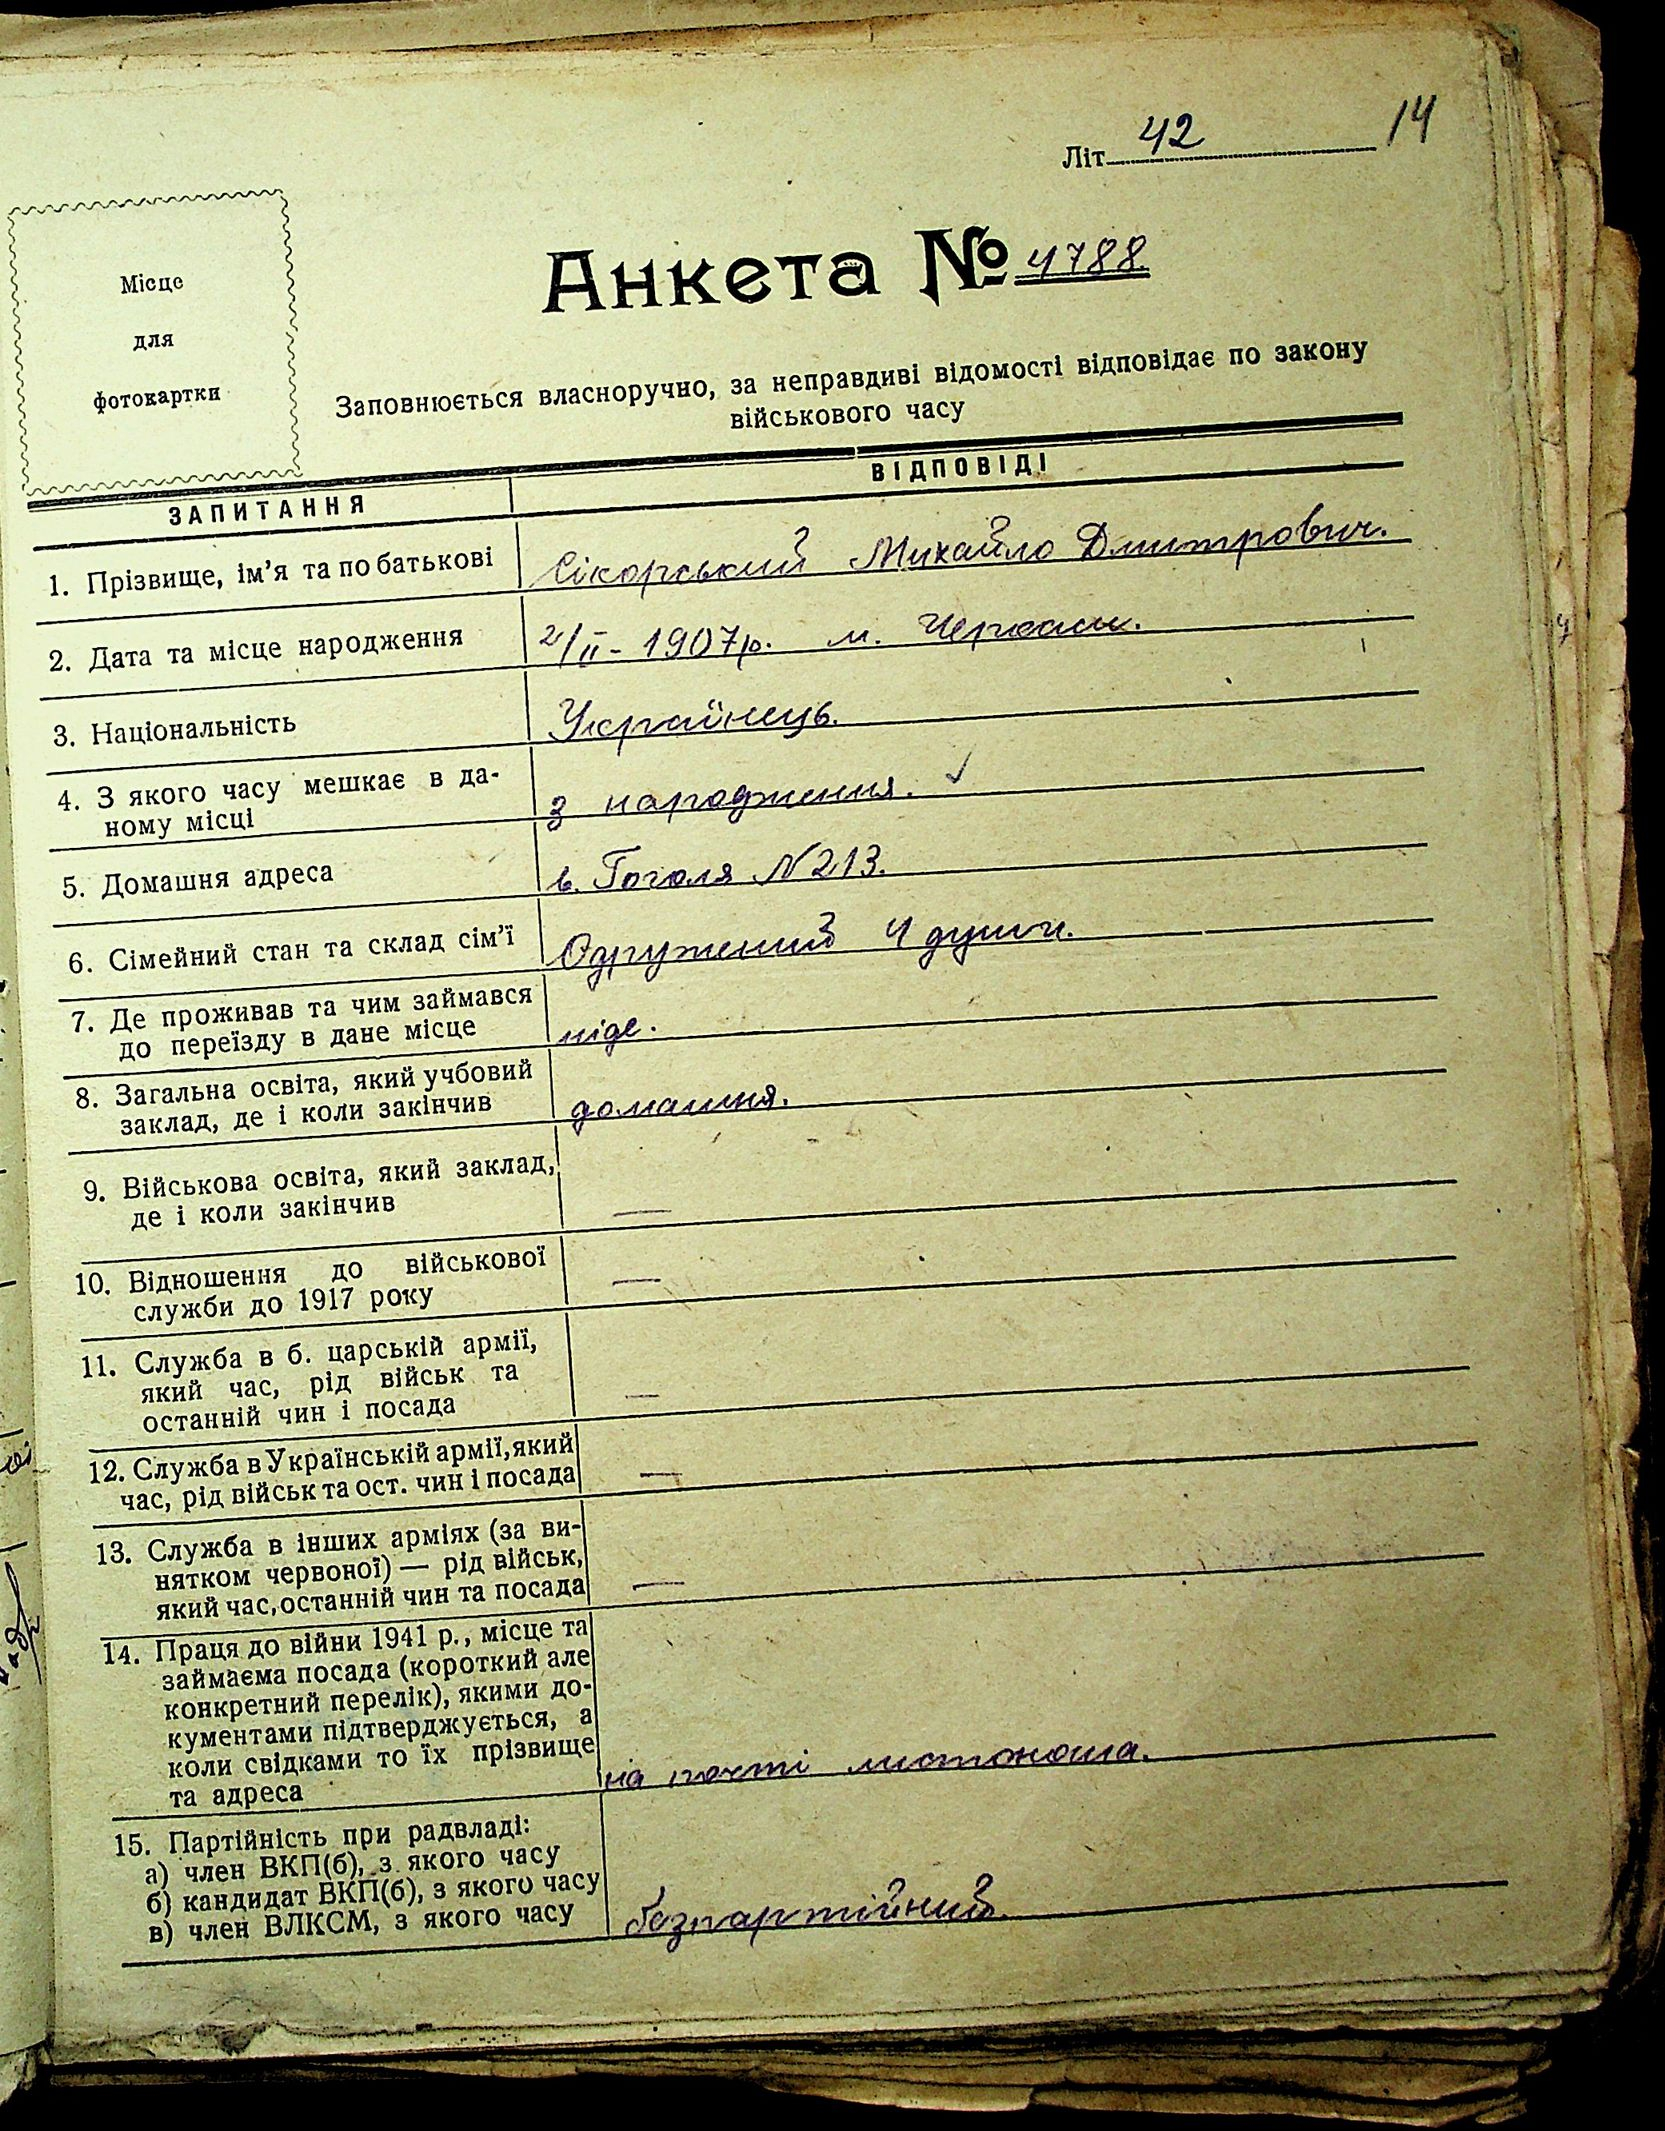 14
Літ 42
Місце
для
фотокартки
Анкета № 4788
Заповнюється власноручно, за неправдиві відомості відповідає по закону
військового часу
ЗАПИТАННЯ ВІДПОВІДІ
1. Прізвище, ім'я та по батькові Сікорський Михайло Дмитрович.
2. Дата та місце народження 2/II - 1907р. м. Черкаси.
3. Національність Українець.
4. З якого часу мешкає в да-
ному місці з народження.
5. Домашня адреса в. Гоголя N 213.
6. Сімейний стан та склад сім'ї Одружений 4 души.
7. Де проживав та чим займався
до переїзду в дане місце ніде.
8. Загальна освіта, який учбовий
заклад, де і коли закінчив домашня.
9. Військова освіта, який заклад,
де і коли закінчив —
10. Відношення до військової
служби до 1917 року —
11. Служба в б. царській армії,
який час, рід військ та
останній чин і посада —
12. Служба в Українській армії, який
час, рід військ та ост. чин і посада —
13. Служба в інших арміях (за ви-
нятком червоної) — рід військ,
який час, останній чин та посада —
14. Праця до війни 1941 р., місце та
займаєма посада (короткий але
конкретний перелік), якими до-
кументами підтверджується, а
коли свідками то їх прізвище
та адреса на почті листоноша.
15. Партійність при радвладі:
а) член ВКП(б), з якого часу
б) кандидат ВКП(б), з якого часу
в) член ВЛКСМ, з якого часу безпартійний.